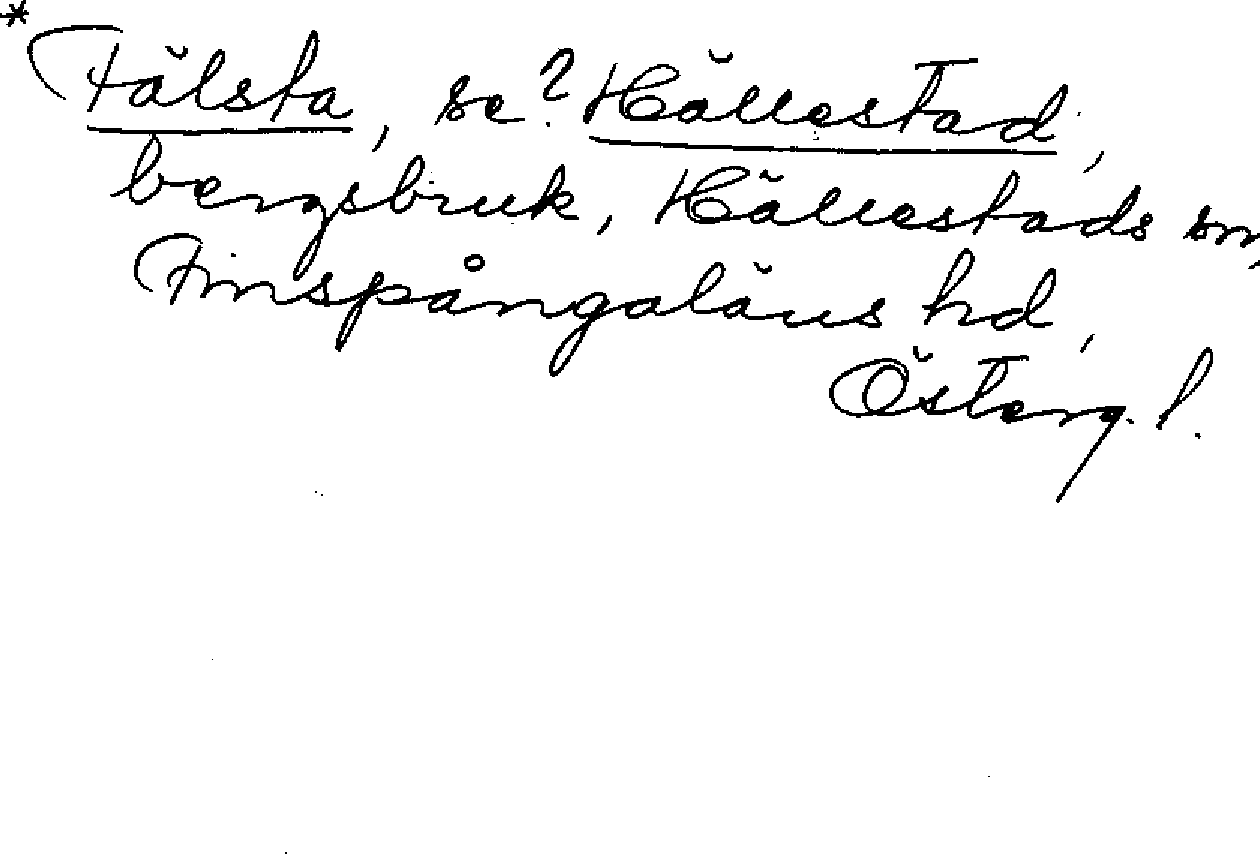 * Fälsta, se? Hällestad,
bergsbruk, Hällestads sn,
Finspångaläns hd,
Österg. l.